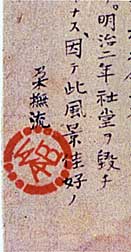 。明治二年社堂ヲ毀チ
ナス因テ此風景佳好ノ
柔撫流